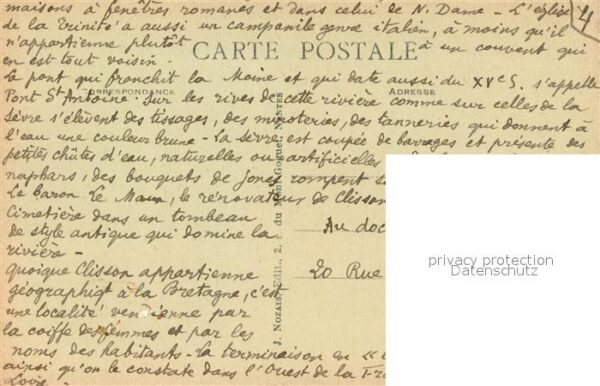 maisons à fenêtres romanes et dans celui de N. Dame - L'église
de la Trinité a aussi un campanile genre italien, à moins qu'il
n'appartienne plutôt à un couvent qui
CARTE POSTALE
en est tout voisin.
Le pont qui franchit la Moine et qui date aussi du XVe S. s'appelle
CORRESPONDANCE
ADRESSE
Pont St Antoine. Sur les rives de cette rivière comme sur celles de la
Sèvre s'élèvent des tissages, des minoteries, des tanneries qui donnent à
l'eau une couleur brune - La Sèvre est coupée de barrages et présente des
petites chûtes d'eau, naturelles ou artificielles
naphars, des bouquets de joncs rompent
Le Baron Le Maun, le rénovateur de Clisson
Cimetière dans un tombeau
de style antique qui domine la
rivière -
quoique Clisson appartienne
géographiqt à la Bretagne, c'est
une localité vendéenne par
la coiffe des femmes et par les
noms des habitants - La terminaison en «
ainsi qu'on le constate dans l'Ouest de la
Loire
J. Nozais, Edit., 2, r. du Moul. Goguet, Nantes
Au doc
20 Rue
4
privacy protection
Datenschutz